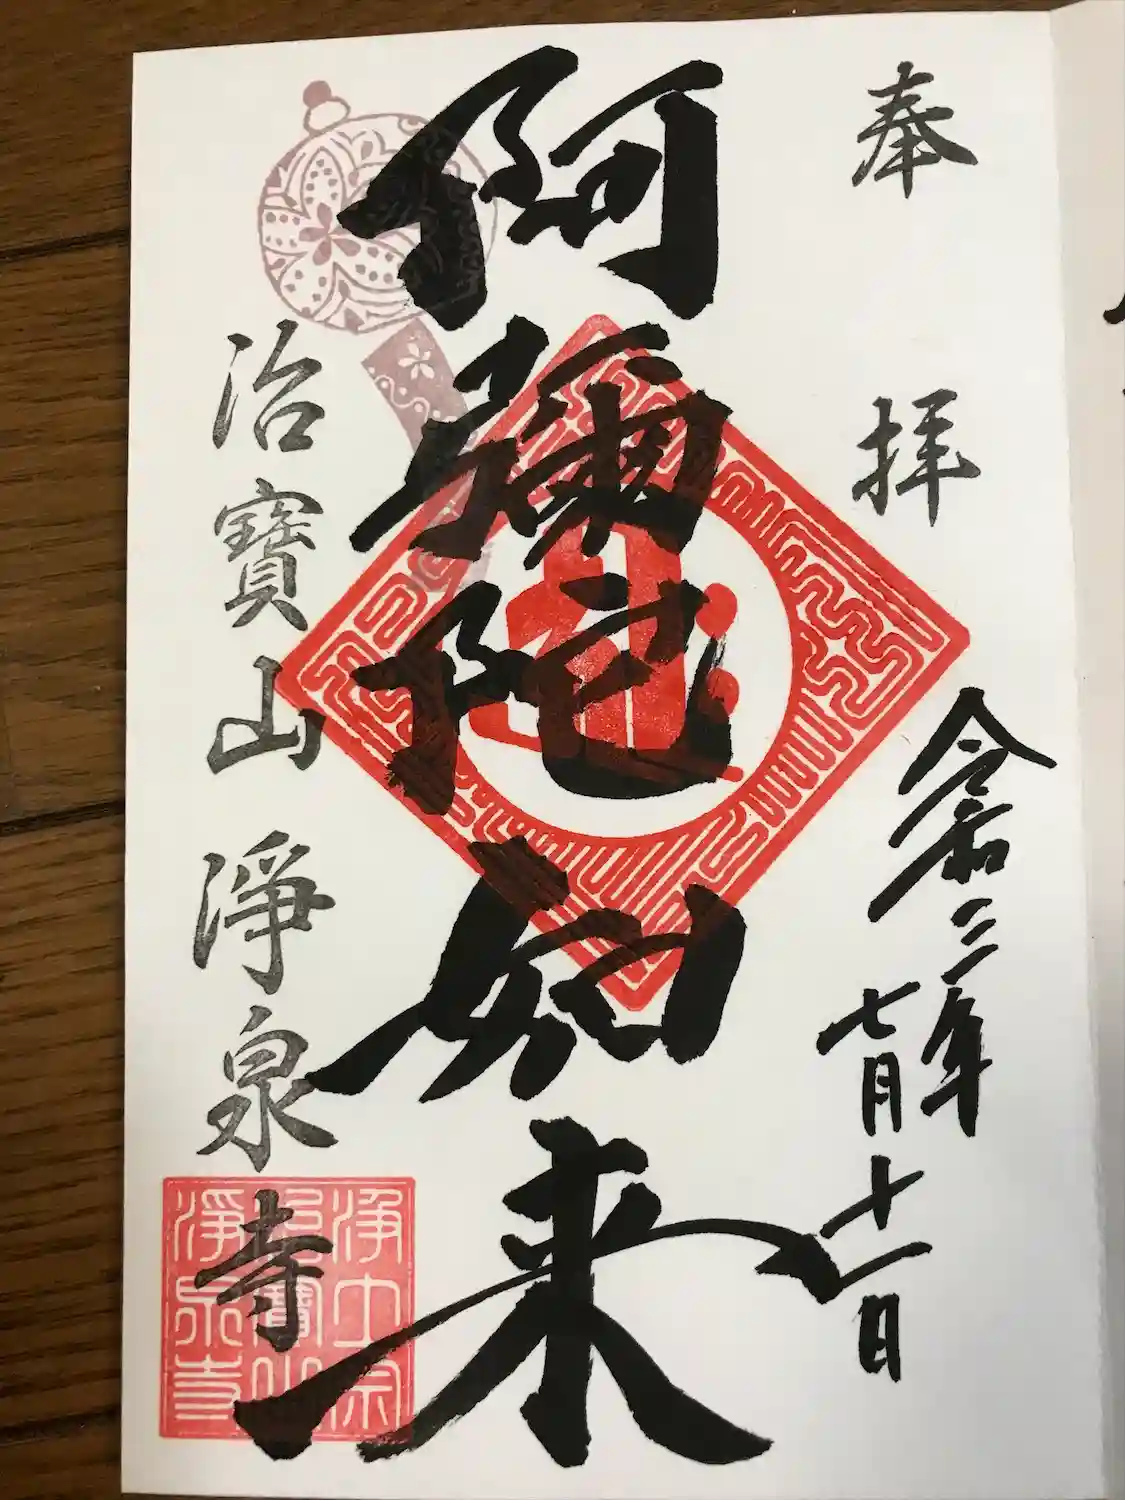 奉拝
令和三年
七月十一日
阿彌陀如来
治寶山淨泉寺
浄土宗
治寶山
淨泉寺